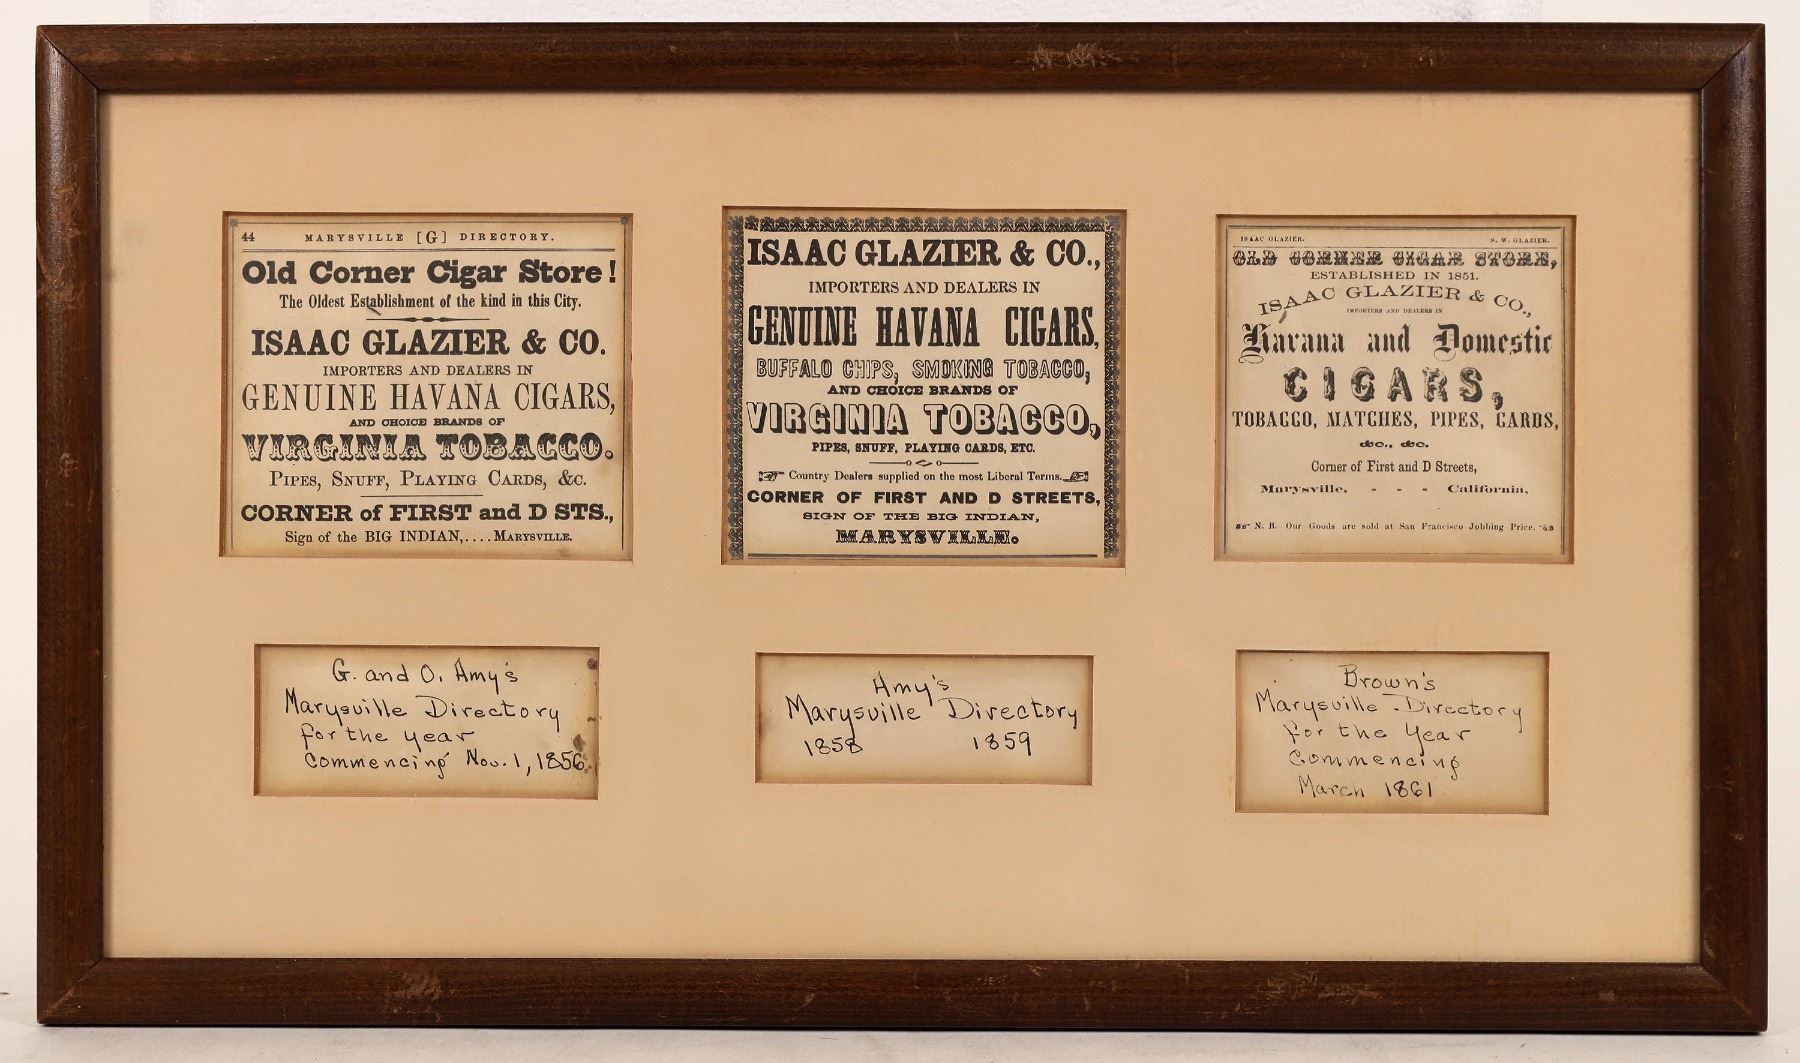 44 MARYSVILLE [G] DIRECTORY.
Old Corner Cigar Store!
The Oldest Establishment of the kind in this City.
ISAAC GLAZIER & CO.
IMPORTERS AND DEALERS IN
GENUINE HAVANA CIGARS,
AND CHOICE BRANDS OF
VIRGINIA TOBACCO.
PIPES, SNUFF, PLAYING CARDS, &C.
CORNER of FIRST and D STS.,
Sign of the BIG INDIAN,....MARYSVILLE.
ISAAC GLAZIER & CO.,
IMPORTERS AND DEALERS IN
GENUINE HAVANA CIGARS,
BUFFALO CHIPS, SMOKING TOBACCO,
AND CHOICE BRANDS OF
VIRGINIA TOBACCO,
PIPES, SNUFF, PLAYING CARDS, ETC.
Country Dealers supplied on the most Liberal Terms.
CORNER OF FIRST AND D STREETS,
SIGN OF THE BIG INDIAN,
MARYSVILLE.
ISAAC GLAZIER. S. W. GLAZIER.
OLD CORNER CIGAR STORE,
ESTABLISHED IN 1851.
ISAAC GLAZIER & CO.,
IMPORTERS AND DEALERS IN
Havana and Domestic
CIGARS,
TOBACCO, MATCHES, PIPES, CARDS,
&c., &c.
Corner of First and D Streets,
Marysville, - - - California,
N. B. Our Goods are sold at San Francisco Jobbing Price.
G. and O. Amy's
Marysville Directory
for the year
commencing Nov. 1, 1856
Amy's
Marysville Directory
1858 1859
Brown's
Marysville Directory
for the Year
Commencing
March 1861